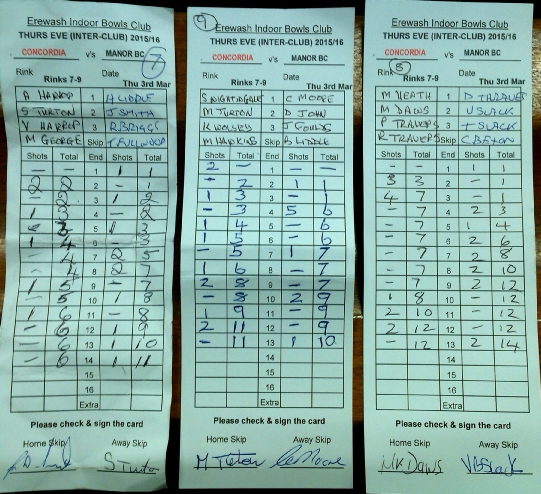 Erewash Indoor Bowls Club
THURS EVE (INTER-CLUB) 2015/16
CONCORDIA v's MANOR BC
7
Rink Rinks 7-9 Date Thu 3rd Mar
A HARROP 1 A LIDDLE
S TURTON 2 J SMITH
V HARROP 3 R BRIGGS
M GEORGE Skip T FULLWOOD
Shots Total End Shots Total
- - 1 1 1
2 2 2 - 1
- 2 3 1 2
1 3 4 - 2
- 3 5 1 3
1 4 6 - 3
- 4 7 2 5
- 4 8 2 7
1 5 9 - 7
- 5 10 1 8
1 6 11 - 8
- 6 12 1 9
- 6 13 1 10
- 6 14 1 11
15
16
Extra
Please check & sign the card
Home Skip Away Skip
S Turton
9
Erewash Indoor Bowls Club
THURS EVE (INTER-CLUB) 2015/16
CONCORDIA v's MANOR BC
Rink Rinks 7-9 Date Thu 3rd Mar
S NIGHTINGALE 1 C MOORE
M TURTON 2 D JOHN
K WOLSEY 3 J GOULDS
M HAWKINS Skip B LIDDLE
Shots Total End Shots Total
2 - 1 -
- 2 2 1 1
1 3 3 - 1
- 3 4 5 6
1 4 5 - 6
1 5 6 - 6
- 5 7 1 7
1 6 8 - 7
2 8 9 - 7
- 8 10 2 9
1 9 11 - 9
2 11 12 - 9
- 11 13 1 10
14
15
16
Extra
Please check & sign the card
Home Skip Away Skip
M Turton C Moore
Erewash Indoor Bowls Club
THURS EVE (INTER-CLUB) 2015/16
CONCORDIA v's MANOR BC
8
Rink Rinks 7-9 Date Thu 3rd Mar
M HEATH 1 D
M DAWS 2 V SLACK
P TRAVERS 3 T SLACK
R TRAVERS Skip C BEXON
Shots Total End Shots Total
- - 1 1 1
3 3 2 - 1
4 7 3 - 1
- 7 4 2 3
- 7 5 1 4
- 7 6 2 6
- 7 7 2 8
- 7 8 2 10
- 7 9 2 12
1 8 10 - 12
2 10 11 - 12
2 12 12 - 12
- 12 13 2 14
14
15
16
Extra
Please check & sign the card
Home Skip Away Skip
Daws V Slack